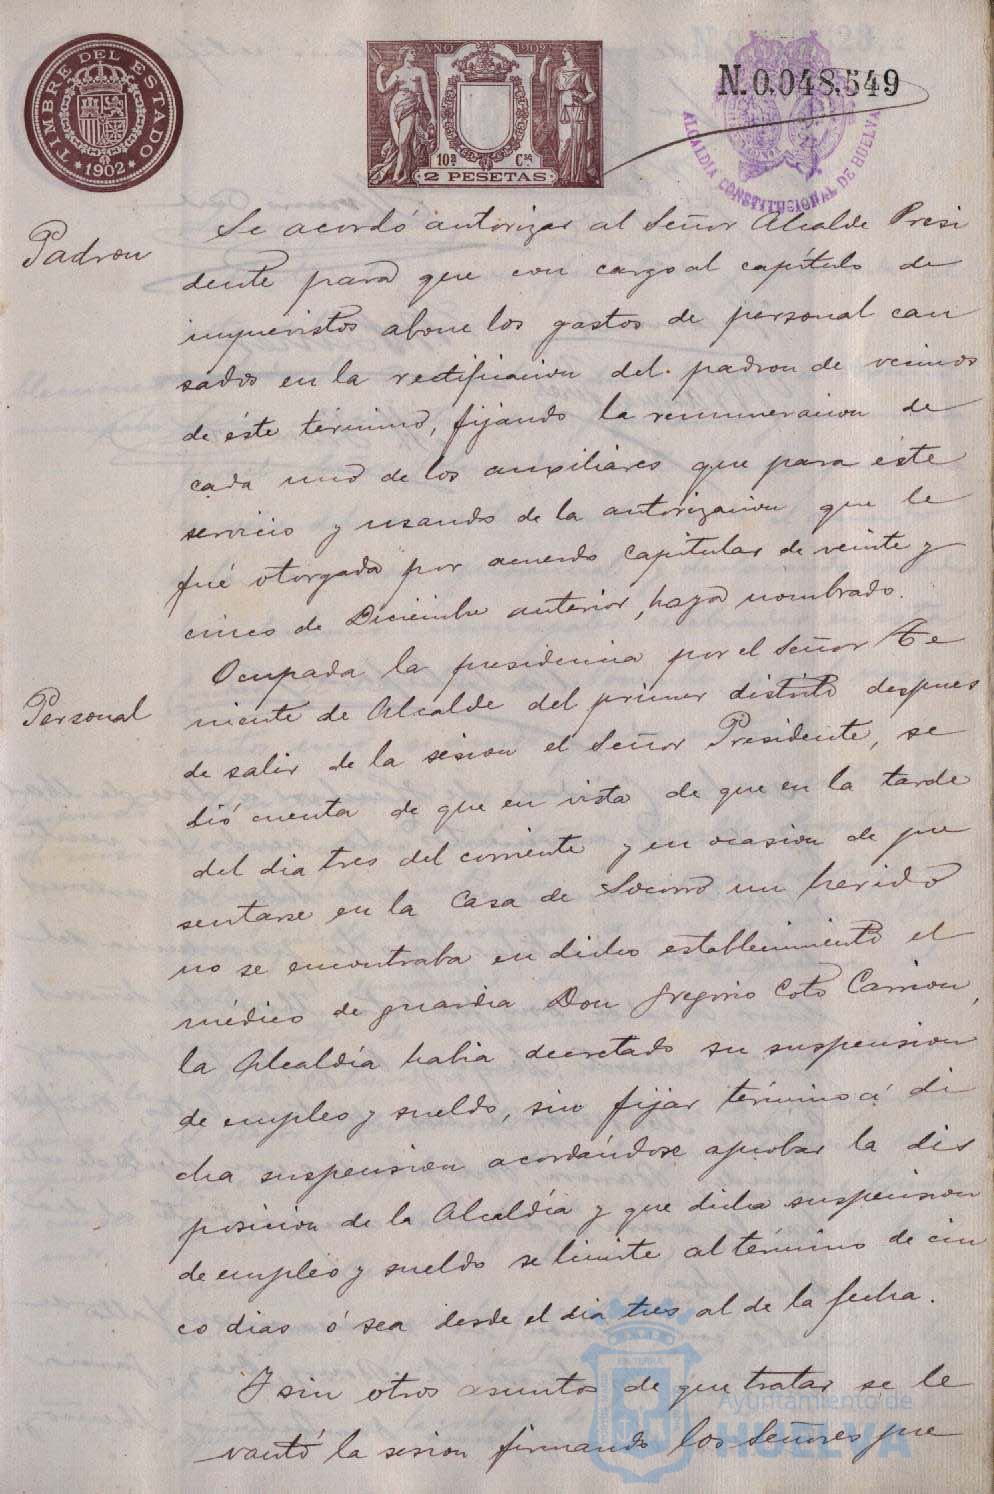 TIMBRE DEL ESTADO
1902
AÑO 1902
10ª Cse
2 PESETAS
N. 0.048.549
ALCALDIA CONSTITUCIONAL DE HUELVA
Padron
Se acordó autorizar al Señor Alcalde Presi
dente para que con cargo al capítulo de
imprevistos abone los gastos de personal cau
sados en la rectificacion del padron de vecinos
de éste término, fijando la remuneracion de
cada uno de los auxiliares que para éste
servicio y usando de la autorizacion que le
fué otorgada por acuerdo capitular de veinte y
cinco de Diciembre anterior, haya nombrado.
Personal
Ocupada la presidencia por el Señor Te
niente de Alcalde del primer distrito despues
de salir de la sesion el Señor Presidente, se
dió cuenta de que en vista de que en la tarde
del dia tres del corriente y en ocasion de pre
sentarse en la Casa de Socorro un herido
no se encontraba en dicho establecimiento el
médico de guardia Don Gregorio Coto Carrion,
la Alcaldía habia decretado su suspension
de empleo y sueldo, sin fijar término á di
cha suspension acordándose aprobar la dis
posicion de la Alcaldía y que dicha suspension
de empleo y sueldo se limite al término de cin
co dias ó sea desde el dia tres al de la fecha.
Y sin otros asuntos de que tratar se le
vantó la sesion firmando los Señores que
Ayuntamiento de
HUELVA